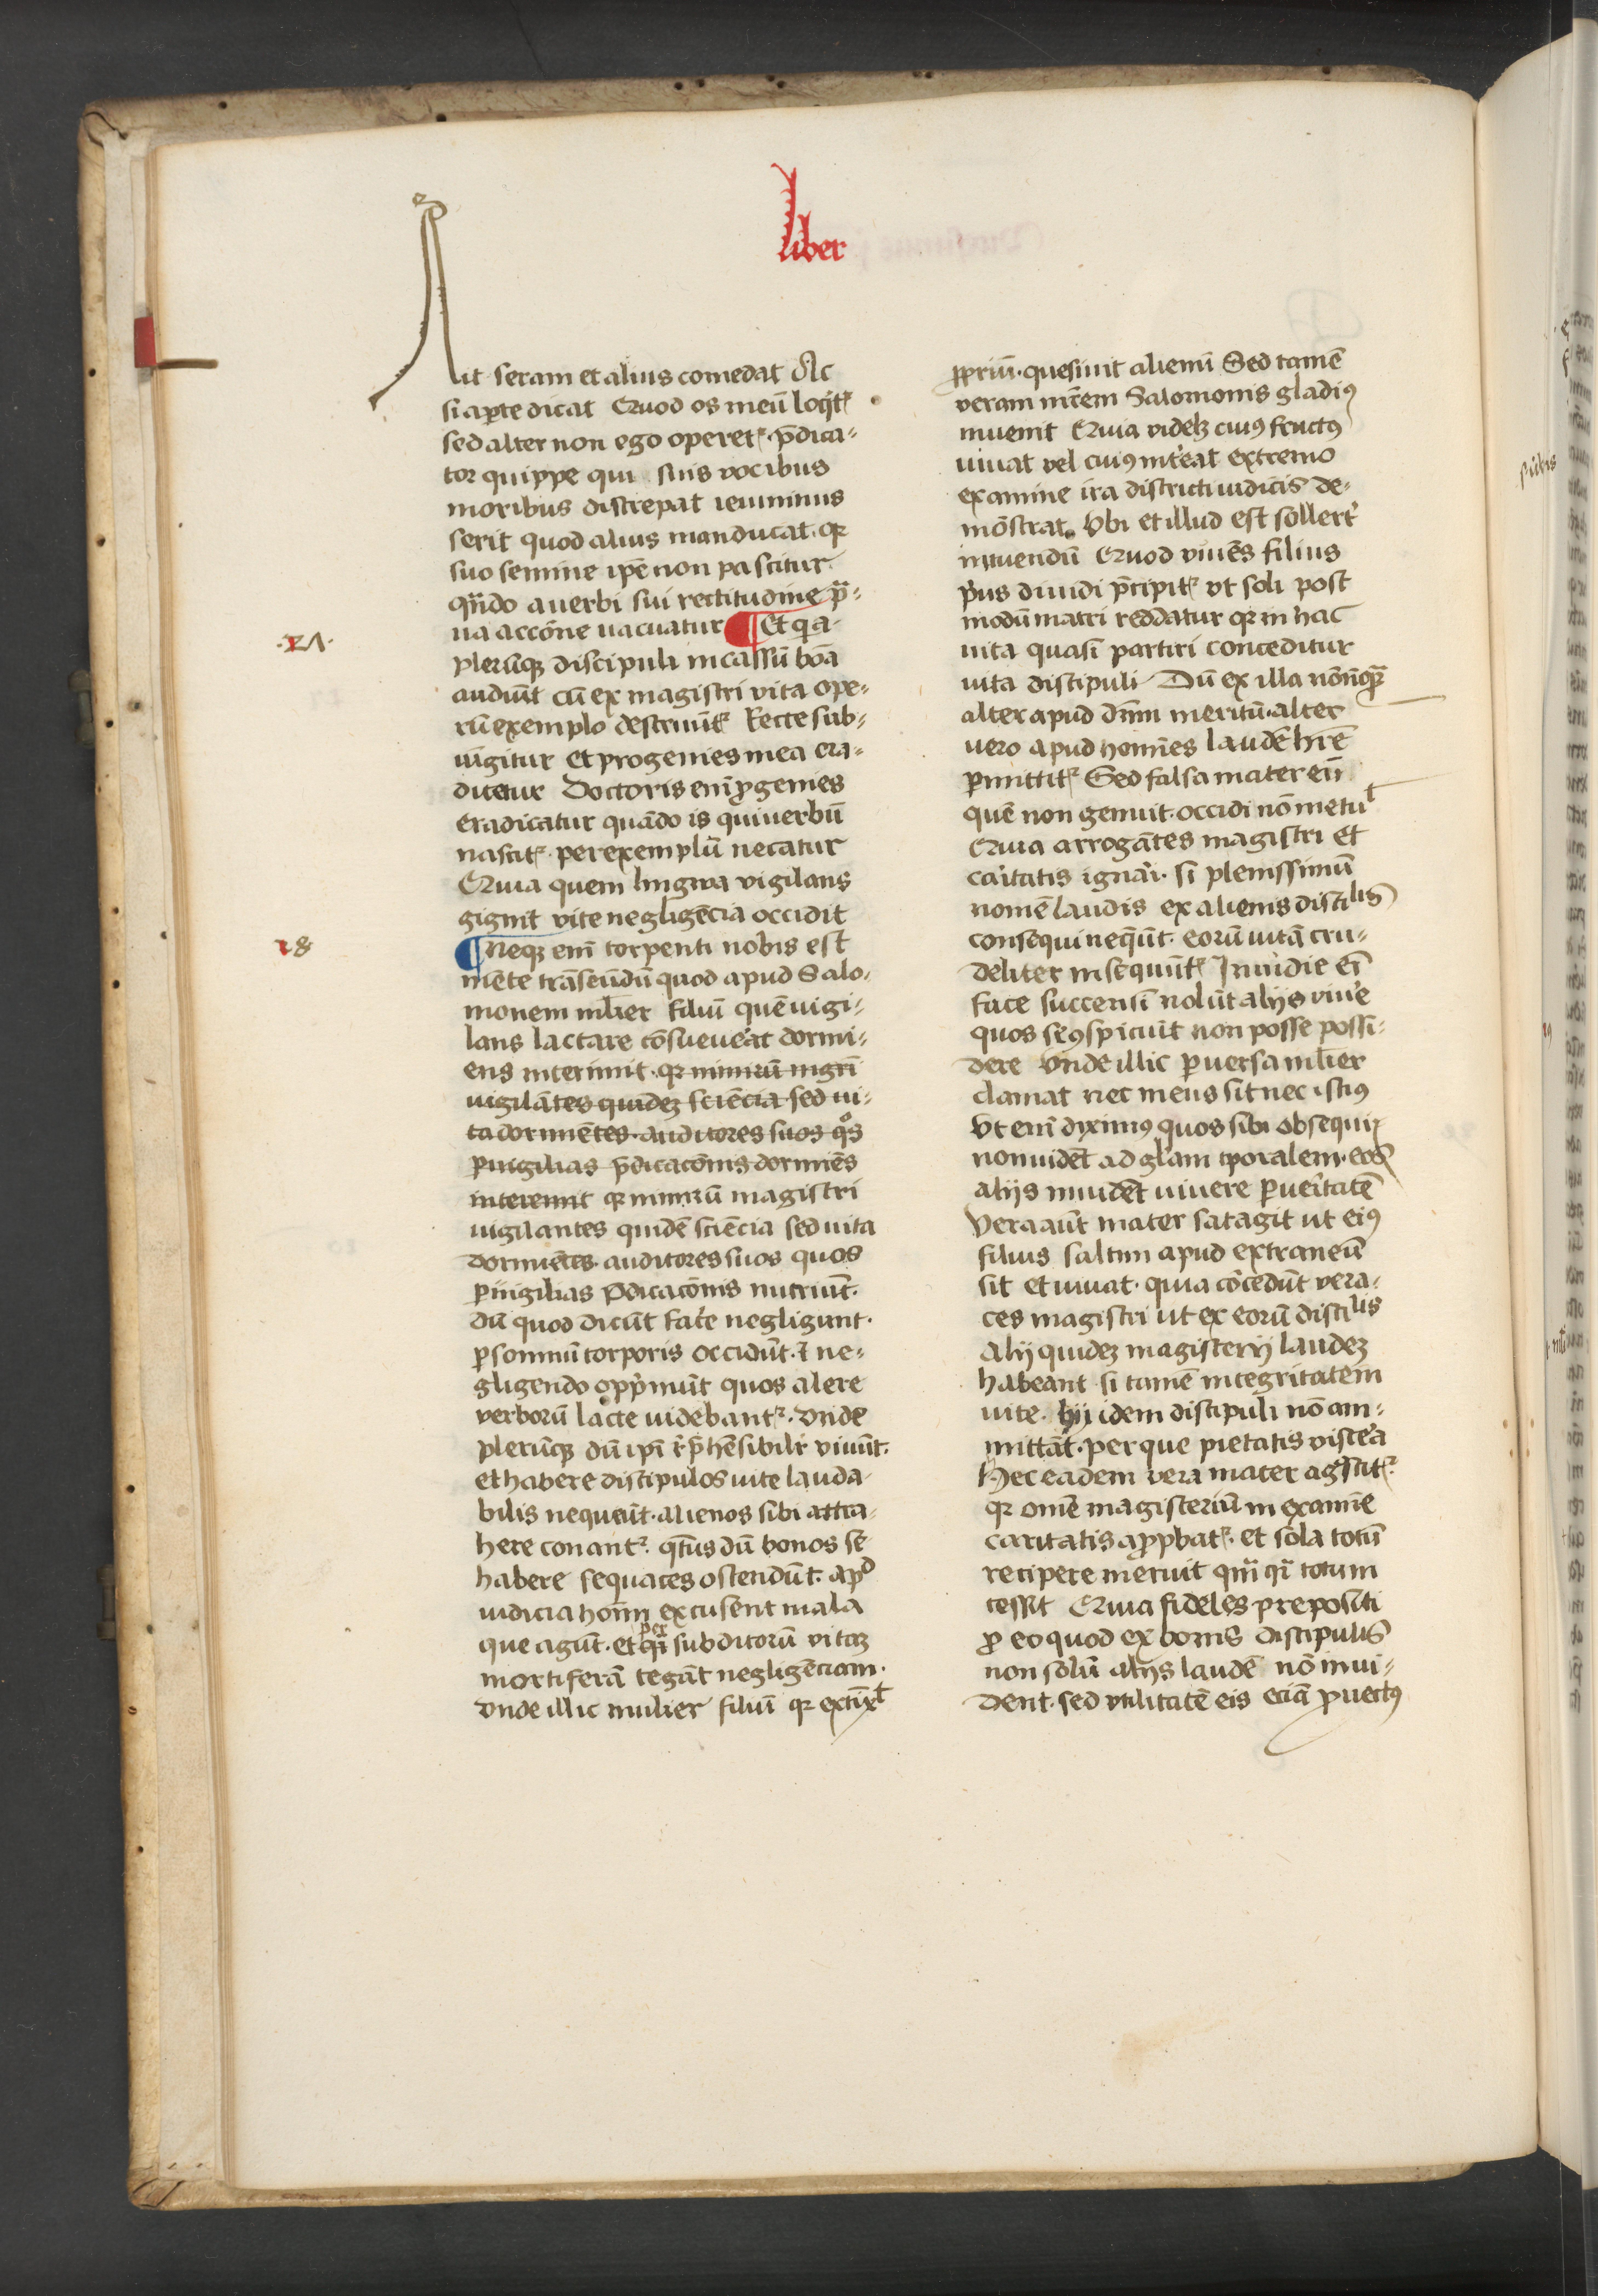 liber
Ait seram et alius comedat Ac
si aperte dicat Quod os meū loqitᷣ
sed alter non ego operetᷣ. p̄dica-
tor quippe qui suis vocibus
moribus discrepat ieiunius
serit quod alius manducat. qr
suo semine ip̄e non pascitur
qn̄do a verbi sui rectitudine p̄-
ua accōne uacuatur ¶ Et q̄a
.17.
plerūqꝫ discipuli incassū bōa
audiūt cū ex magistri vita ope-
rū exemplo destruūtᷣ Recte sub-
iūgitur et progenies mea era-
dicetur Doctoris em̄ ꝓgenies
eradicatur quādo is qui verbū
nascitᷣ. per exemplū necatur
Quia quem lingwa vigilans
gignit vite negligēcia occidit
18
¶ Neqꝫ em̄ torpenti nobis est
mēte trāseūdū quod apud Salo-
monem ml̄ier filiū quē uigi-
lans lactare cōsueu͛at dormi-
ens interimit. qr nimirū mgr̄i
uigilātes quidēꝫ sciēcia sed ui-
ta dormiētes. auditores suos qͦs
ꝑuigilias p̄dicacōnis dormiēs
interemit qr nimirū magistri
uigilantes quidē sciēcia sed uita
dormiētes. auditores suos quos
ꝑ uigilias p̄dicacōnis nutriūt.
dū quod dicūt fac͛e negligunt.
ꝑ somnū torporis occidūt. ⁊ ne-
gligendo opp͛mūt quos alere
verborū lacte uidebantᷣ. vnde
plerūqꝫ dū ip̄i r͛p̄hēsibilr͛ viuūt.
et habere discipulos uite lauda-
bilis nequeūt. alienos sibi attra-
here conantᷣ. qt̄us dū bonos se
habere sequaces ostendūt. apᵈ
iudicia hoīm excusent mala
que agūt. et per subditorū vitaꝫ
mortiferā tegāt negligēciam.
vnde illic mulier filiū qr extīxᵗ
ꝓpriū. quesiuit alienū Sed tamē
veram mr̄em Salomonis gladiꝰ
inuenit Quia videlꝫ cuiꝰ fructꝰ
uiuat vel cuiꝰ int͛eat extremo
examine ira districti iudicis de-
mōstrat. Vbi et illud est sollert͛
intuendū Quod viuēs filius
pͥus diuidi p̄cipitᷣ vt soli post
modū matri reddatur qr in hac
uita quasi partiri conceditur
uita discipuli Dū ex illa nōnūqᷓ
alter apud dn̄m meritū. alter
uero apud homīes laudē hr̄e
ꝑmittitᷣ Sed falsa mater eū
quē non genuit. occidi nō metuᵗ
Quia arrogātes magistri et
caritatis ignari. si plenissimū
nomē laudis ex alienis discilis
consequi neq̄ūt. eorū uitā cru-
deliter insequūtᷣ Inuidie em̄
face succensi nolūt alijs viu͛e
quos se ꝯspiciūt non posse possi-
dere vnde illic ꝑuersa ml̄ier
clamat nec meus sit nec istiꝰ
Vt em̄ diximꝰ quos sibi obsequij
non uidēt ad gl̄am tꝑoralem. eos
alijs inuidēt uiuere ꝑ ueritatē
Vera aūt mater satagit ut eiꝰ
filius saltim apud extraneū
sit et uiuat. quia cōcedūt vera-
ces magistri ut ex eorū discilis
alij quidēꝫ magisterij laudeꝫ
habeant si tamē integritatem
uite. hij idem discipuli nō am-
mittāt. per que pietatis visc͛a
hec eadem vera mater agͦscitᷣ
qr omē magisteriū in examīe
caritatis aꝓpbatᷣ. et sola totū
recipere meruit que qͥ totum
cessit Quia fideles prepositi
ꝓ eo quod ex bonis discipulis
non solū alijs laudē nō inui-
dent. sed vtilitatē eis eciā ꝓuectꝰ